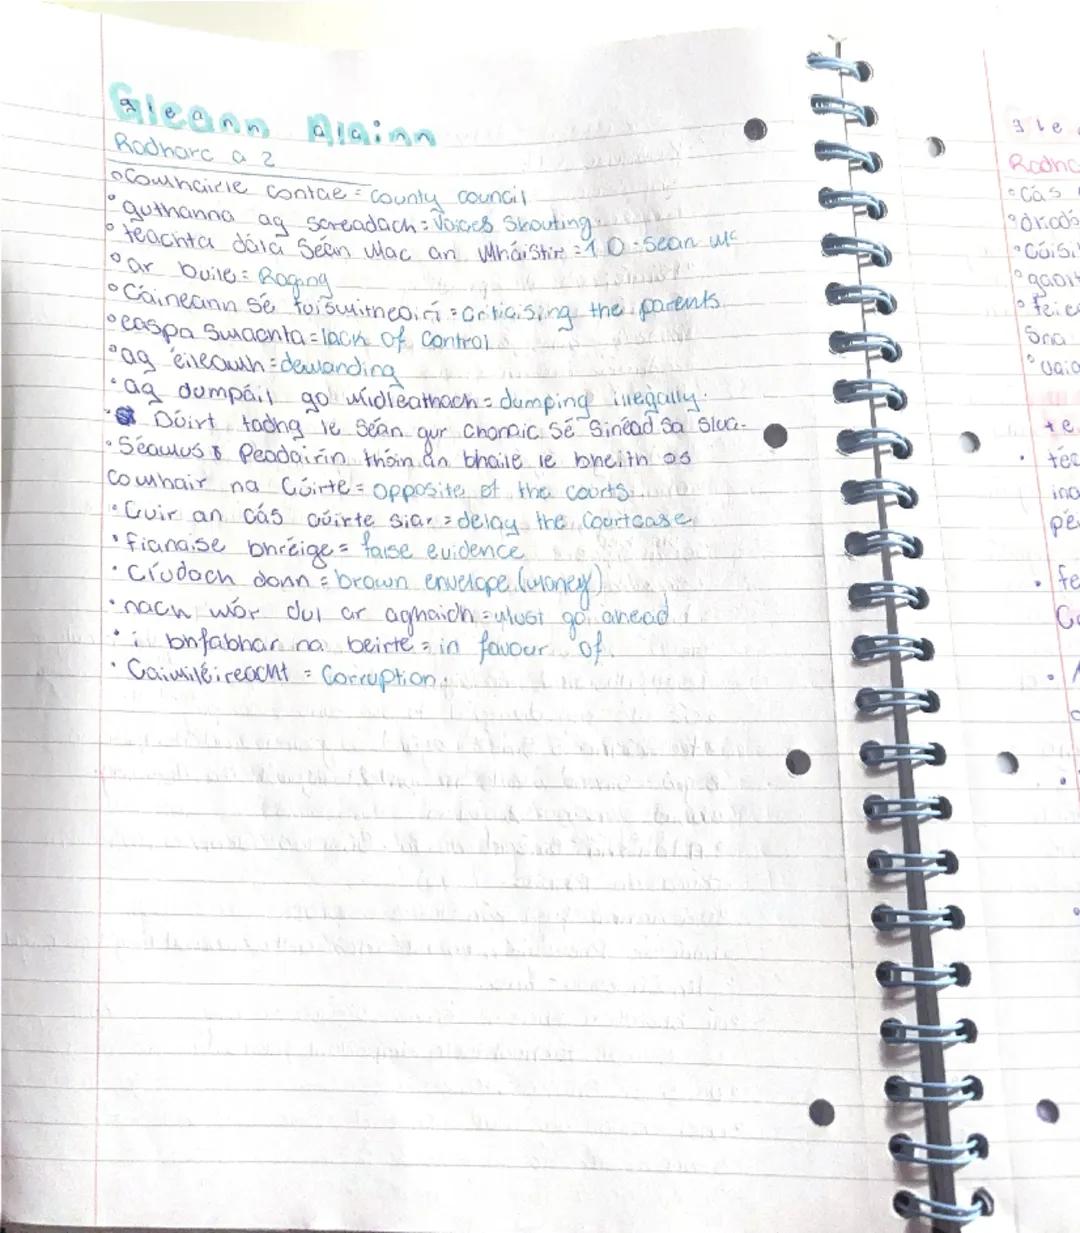 Gleann Álainn
Radharc a 2
Comhairle contae = County council
guthanna ag screadach = Voices shouting
teachta dála Seán Mac an Mháistir = T.D - Sean
ar buile = Raging
Cáineann sé = Criticising the parents
easpa smachta = lack of control
ag éileamh = demanding
ag dumpáil go mídleathach = dumping illegally.
Dúirt tadhg le Seán gur chonaic sé Sinéad sa slua.
Séamus & Peadairín thóin an bhaile le bheith os
comhair na Cúirte = opposite of the courts.
Cuir an cás cúirte siar = delay the courtcase
fianaise bhréige = false evidence
Clúdach donn = brown envelope (money)
nach mór dul ar aghaidh = Must go ahead
i bhfabhar na beirte = in favour of.
Caimiléireacht = Corruption.
gle
Radha
Cás
Cúisi
feice
Sna
te
téa
pé
fe